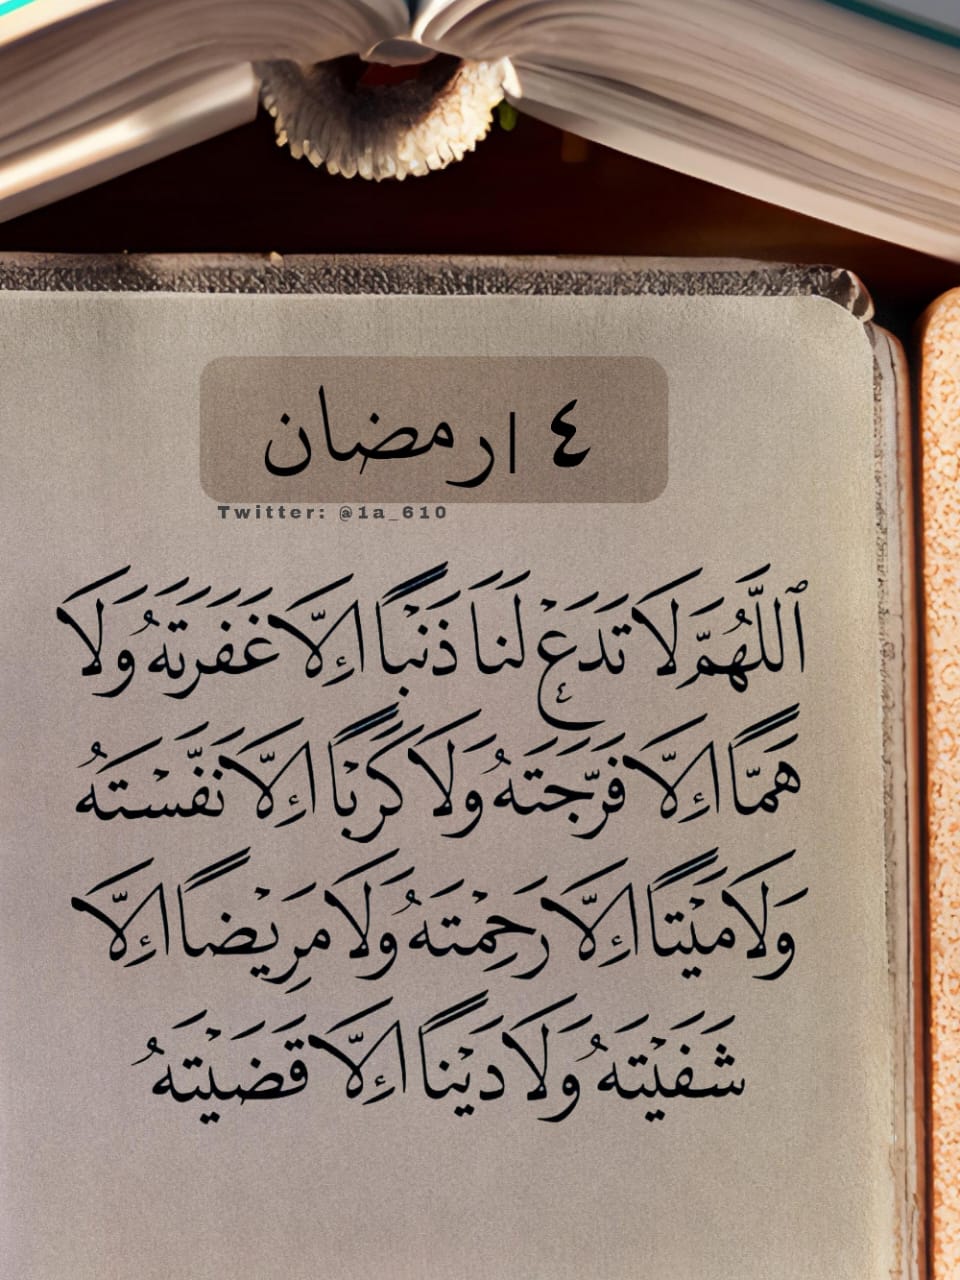 ٤ |رمضان
Twitter: @1a_610
ٱللَّهُمَّ لَا تَدَعْ لَنَا ذَنْبًا إِلَّا غَفَرْتَهُ وَلَا
هَمًّا إِلَّا فَرَّجْتَهُ وَلَا كَرْبًا إِلَّا نَفَّسْتَهُ
وَلَا مَيْتًا إِلَّا رَحِمْتَهُ وَلَا مَرِيْضًا إِلَّا
شَفَيْتَهُ وَلَا دَيْنًا إِلَّا قَضَيْتَهُ